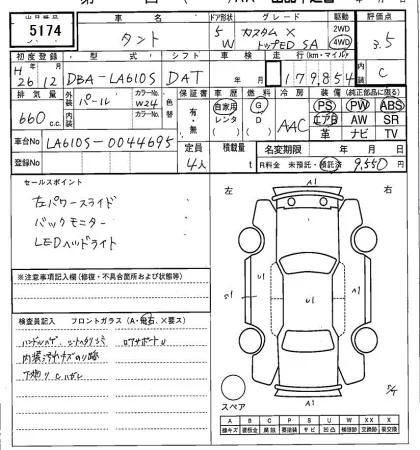 出品番号
5174
車 名
タント
ドア形状
5
W
グレード
カスタム X
トップED SA
駆動
2WD
4WD
評価点
3.5
初度登録
H
26年 12月
型 式
DBA-LA610S
シフト
DAT
車 検
年 月
走 行 (km・マイル)
179,854
内装
C
排気量
660 c.c.
外装
パール
カラーNo.
W24
色替
カラーNo.
保証書
有・無
車 歴
自家用
レンタ
燃 料
G
D
冷 房
AAC
装 備 (純正部品に限る)
PS PW ABS
エアB AW SR
革 ナビ TV
車台No
LA610S-0044695
登録No
定員
4人
積載量
t
名変期限
年 月 日
R料金 未預託・預託済 9,550円
セールスポイント
左パワースライド
バックモニター
LEDヘッドライト
※注意事項記入欄 (修復・不具合箇所および状態等)
検査員記入 フロントガラス (A・飛石、×要ス)
ハンドルハゲ シートスリキズ ロアサポートU
内装汚れキズの跡
下廻りC ハガレ
左
右
A1
U1
U1
A1
スペア
A B C P S U W X XX
線キズ 要板金 腐蝕 要塗装 サビ 凹凸 補修跡 要交換 交換済